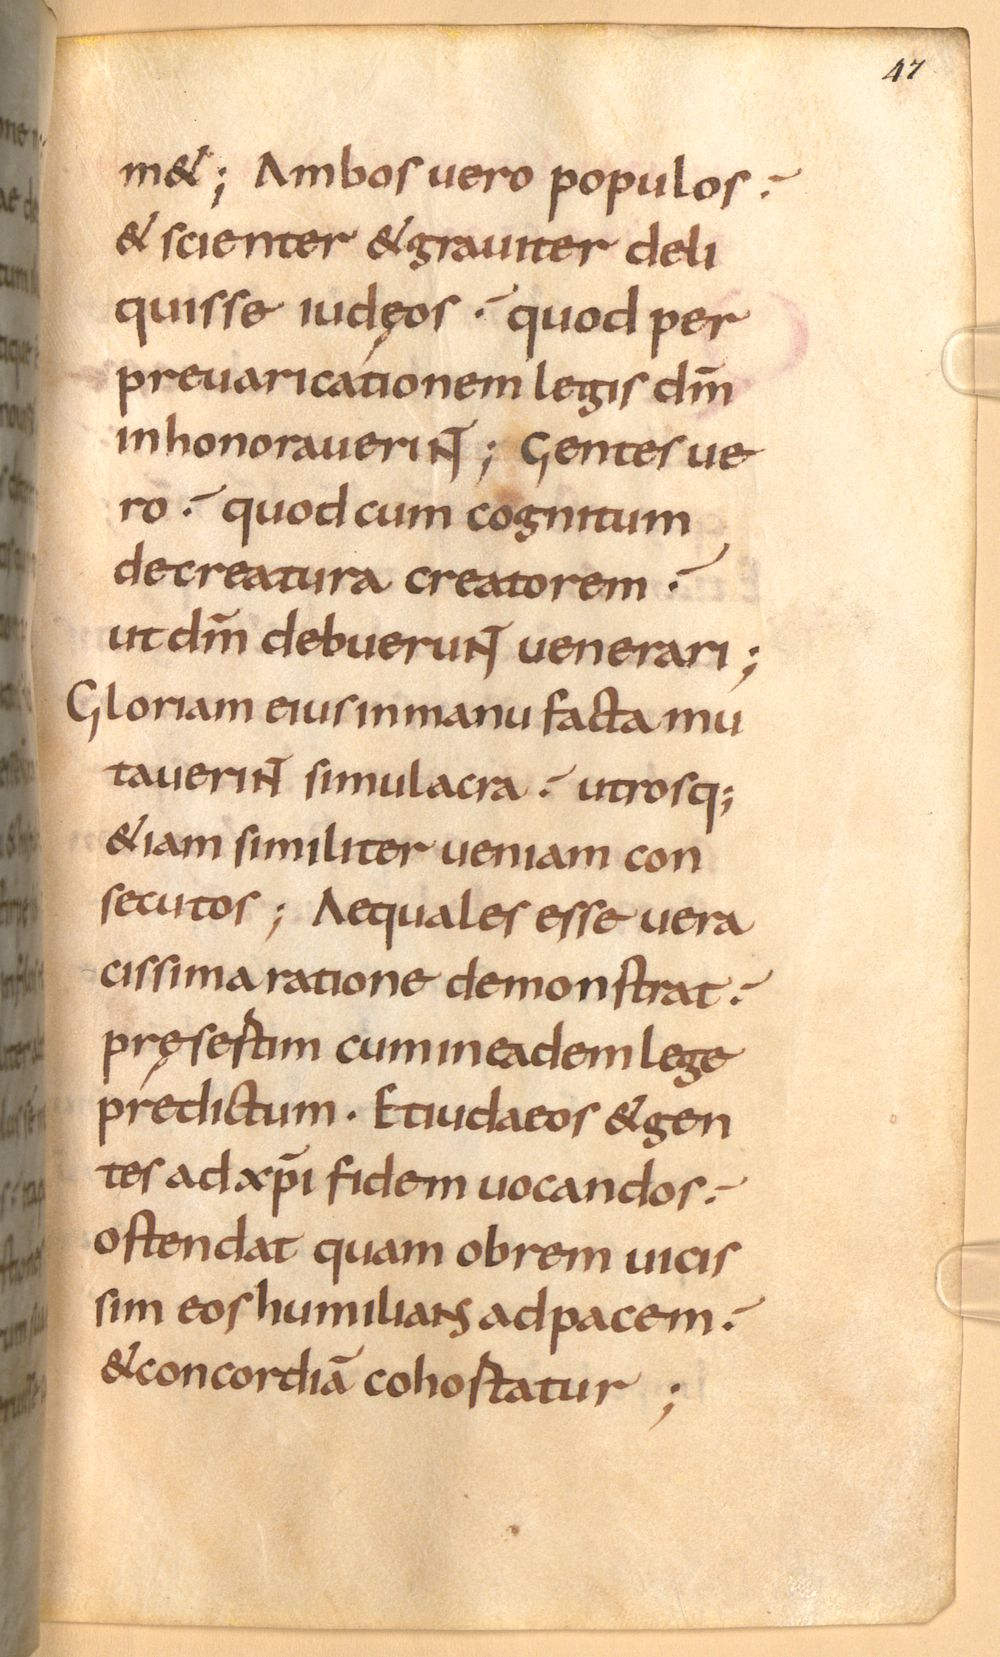 47
m&; Ambos uero populos.
& scienter & grauiter deli
quisse iudęos. quod per
preuaricationem legis dm̄
inhonorauerint; Gentes ue
ro. quod cum cognitum
de creatura creatorem.
ut dm̄ debuerunt uenerari;
Gloriam eius in manu facta mu
tauerint simulacra. utrosq;
&iam similiter ueniam con
secutos; Aequales esse uera
cissima ratione demonstrat.
pręsestim cum in eadem lege
prędictum. Et iudaeos & gen
tes ad xp̄i fidem uocandos.
ostendat quam obrem uicis
sim eos humilians ad pacem.
& concordiā cohostatur;